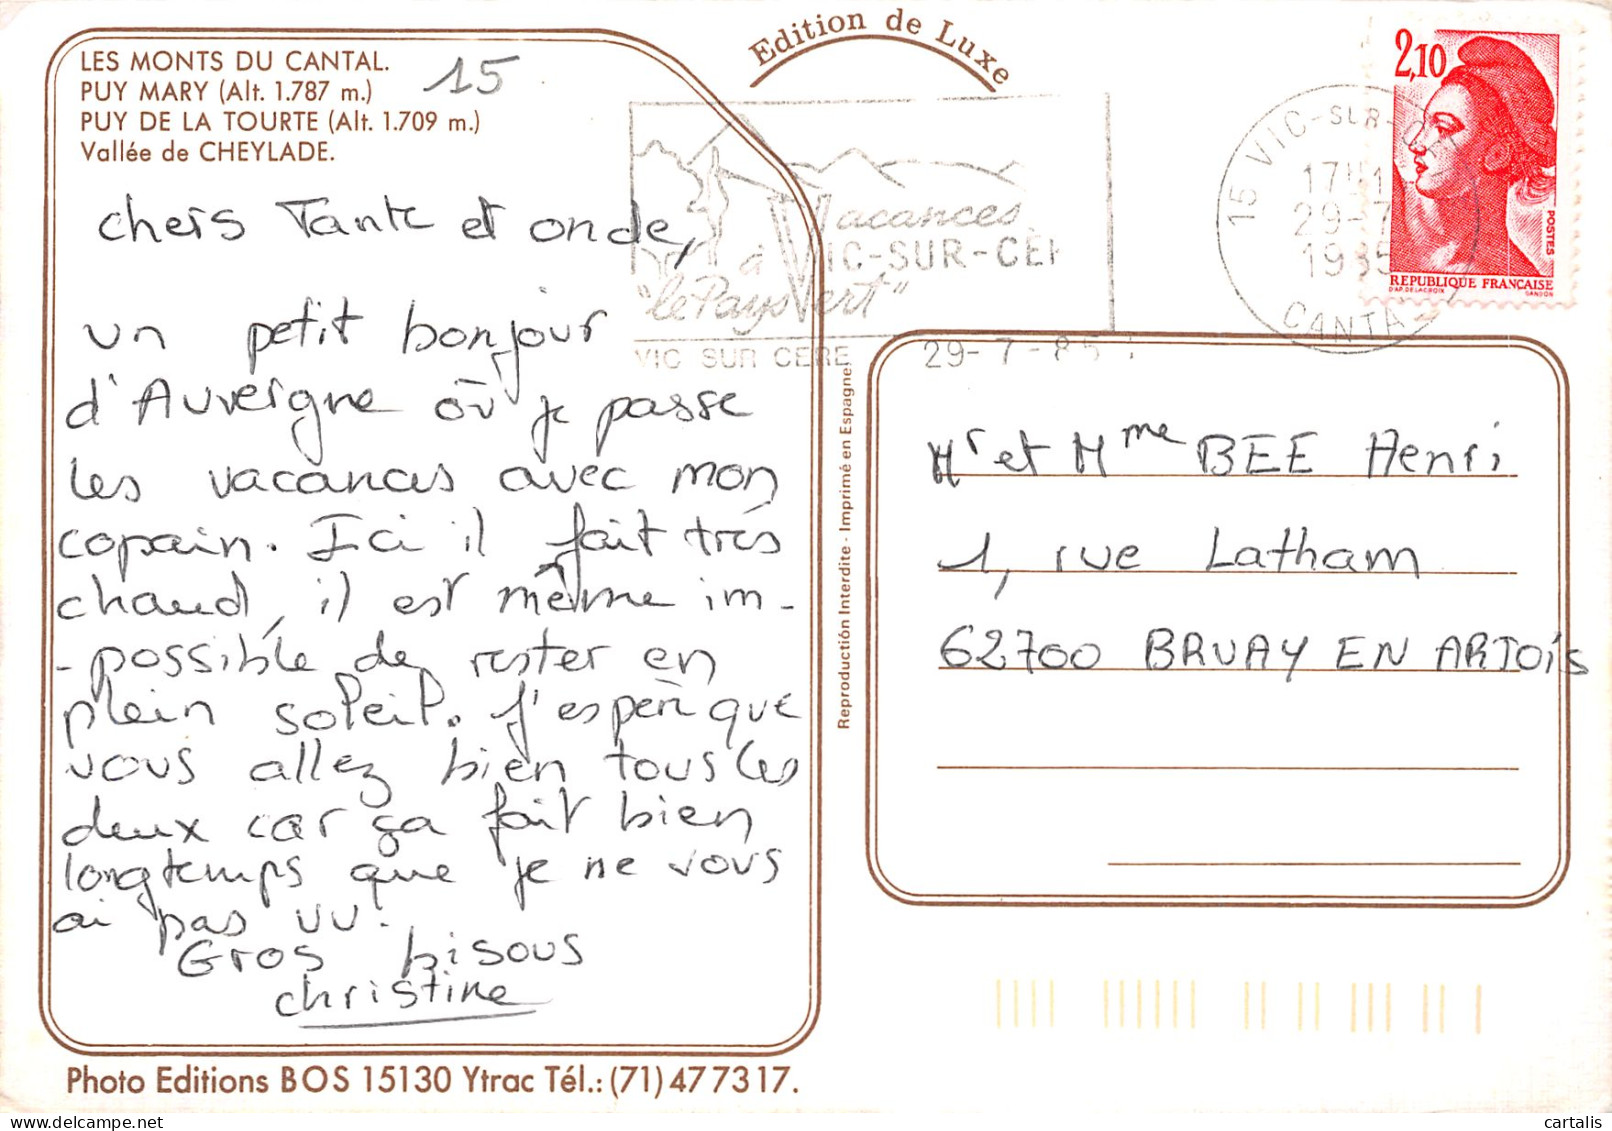 LES MONTS DU CANTAL.
PUY MARY (Alt. 1.787 m.)
PUY DE LA TOURTE (Alt. 1.709 m.)
Vallée de CHEYLADE.
15
Edition de Luxe
chers Tante et oncle,
un petit bonjour
d'Auvergne où je passe
les vacances avec mon
copain. Ici il fait très
chaud, il est même im-
-possible de rester en
plein soleil. J'espère que
vous allez bien tous les
deux car ça fait bien
longtemps que je ne vous
ai pas vu.
Gros bisous
christine
Photo Editions BOS 15130 Ytrac Tél.: (71) 47 73 17.
Reproduction Interdite - Imprimé en Espagne.
Vacances
à VIC-SUR-CÈR
"le Pays Vert"
VIC SUR CERE
29-7-85
15 VIC-SUR-CE
17H
29-7
1985
CANTA
2,10
POSTES
REPUBLIQUE FRANÇAISE
D'AP. DELACROIX
GANDON
Mr et Mme BEE Henri
1, rue Latham
62700 BRUAY EN ARTOIS
cartalis